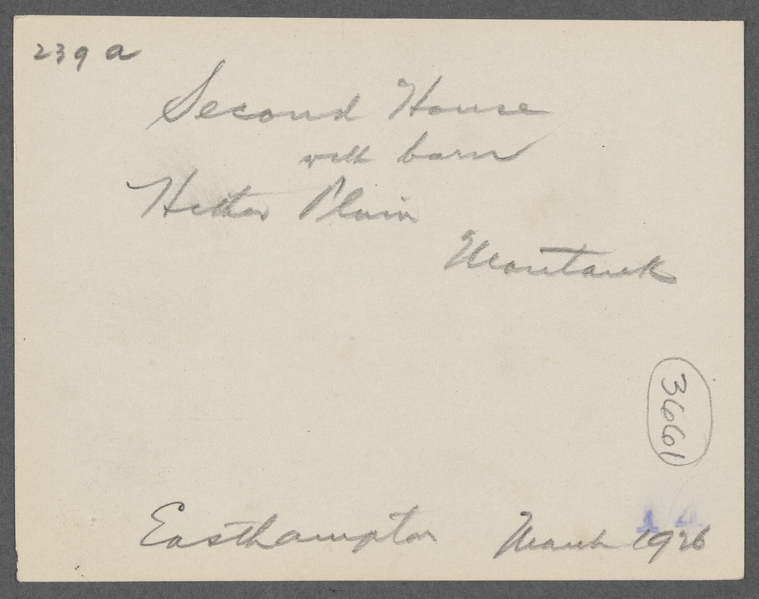 239a
Second House
with barn
Hither Plain
Montauk
3661
Easthampton March 1926